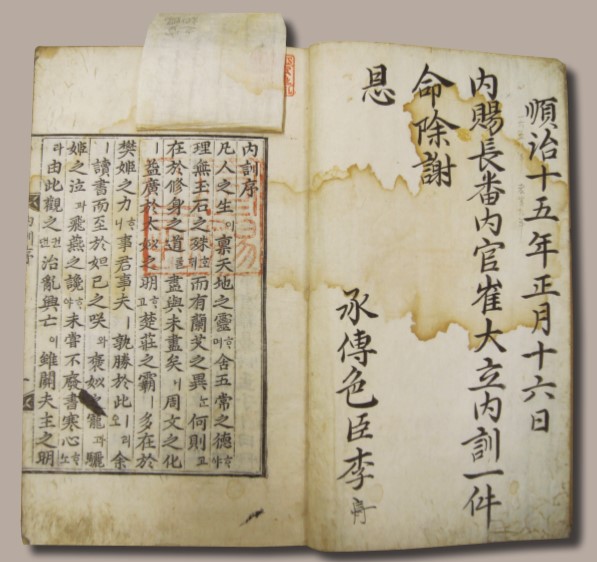 順治十五年正月十六日
內賜長番內官崔大立內訓一件
命除謝
恩
承傳色臣李
內訓序
凡人之生이稟天地之靈ᄒᆞ며含五常之德ᄒᆞ야
理無玉石之殊호ᄃᆡ而有蘭艾之異ᄂᆞᆫ何則고
在於修身之道ᄅᆞᆯ盡與未盡矣니周文之化
ㅣ益廣於太姒之明ᄒᆞ고楚莊之霸ㅣ多在於
樊姬之力ᄒᆞ니事君事夫ㅣ孰勝於此ㅣ리오余
ㅣ讀書而至於妲己之咲와褒姒之寵과驪
姬之泣과飛燕之讒ᄒᆞ야未嘗不廢書寒心ᄒᆞ노
라由此觀之컨댄治亂興亡이雖關夫主之明
內訓序